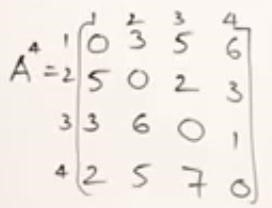 1 2 3 4
A⁴ = 1 0 3 5 6
2 5 0 2 3
3 3 6 0 1
4 2 5 7 0